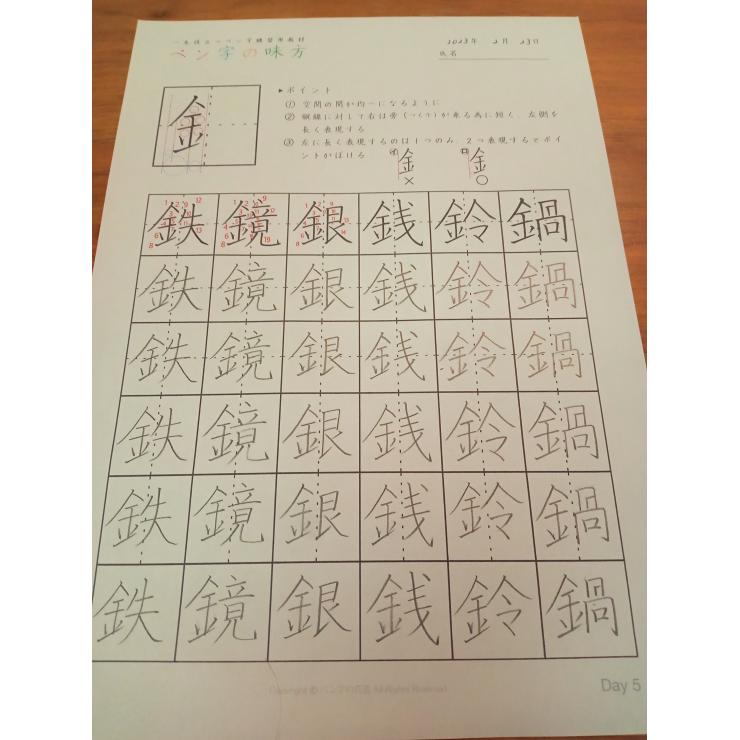 一生役立つペン字練習用教材
ペン字の味方
2023年 2月 23日
氏名
▶ポイント
① 空間の間が均一になるように
② 縦線に対して右は旁(つくり)が来る為に短く、左側を
長く表現する
③ 左に長く表現するのは1つのみ、2つ表現するとポイ
ントがぼける
金 金
× ○
金
鉄 鏡 銀 銭 鈴 鍋
鉄 鏡 銀 銭 鈴 鍋
鉄 鏡 銀 銭 鈴 鍋
鉄 鏡 銀 銭 鈴 鍋
鉄 鏡 銀 銭 鈴 鍋
鉄 鏡 銀 銭 鈴 鍋
Day 5